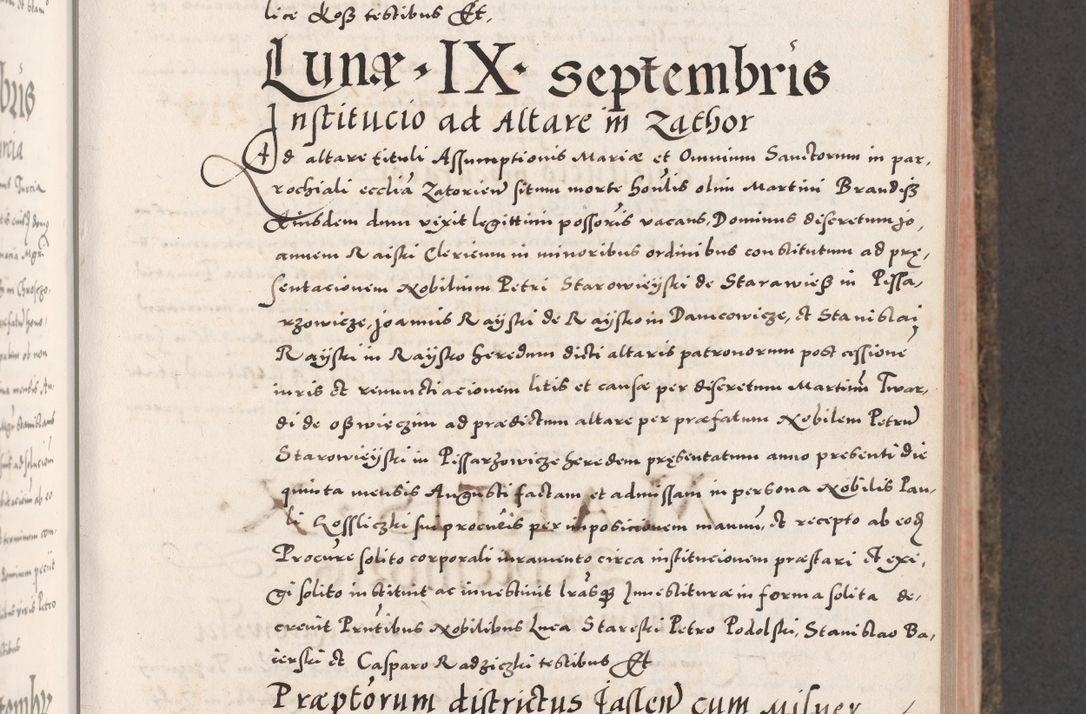 lice Koß testibus Et.
Lunæ · IX · Septembris
Institucio ad Altare in Zathor
Ad altare tituli Assumptionis Mariæ et Omnium Sanctorum in par,
rochiali ecclia Zatorien situm morte honlis olim Martini Brandiß
Eiusdem dum vixit legittimi possoris vacans, Dominus discretum jo,
annem Raiski Clericum in minoribus ordinibus constitutum ad prę,
sentacionem Nobilium Petri Starowieyski de Starawieß in Pissa,
rzowicze, joannis Rayski de Raysko in Danicowicze, et Stanislai
Rayski in Raysko heredum dicti altaris patronorum post cessione
iuris et renunctiacionem litis et causæ per discretum Martinu Twar,
di de oßwięczim ad prædictum altare per præfatum Nobilem Petru
Starowieyski in Pissarzowicze heredem pręsentatum anno presenti die
quinta mensis Augusti factam et admissam in persona Nobilis Pau,
li Kossliczki sui procuris per imposicionem manuu, et recepto ab eodz
Procure solito corporali iuramento circa institucionem præstari et exi,
gi solito instituit ac investiuit lrasqz Jnvestituræ in forma solita de,
creuit Pntibus Nobilibus Luca Stareski Petro Podolski, Stanislao Ba,
ierski et Casparo Radziczki testibus Et
Præptorum districtus Jaslen cum Milner